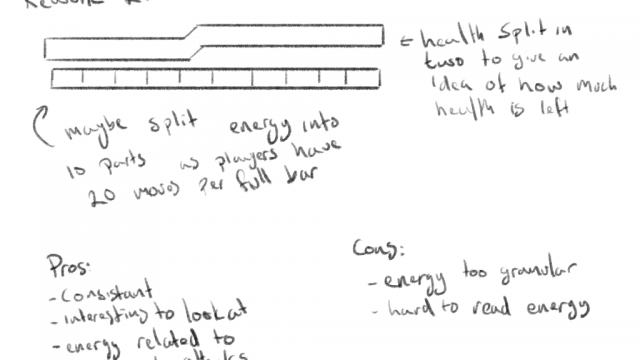 ← health split in
two to give an
idea of how much
health is left
maybe split energy into
10 parts as players have
20 moves per full bar
Pros:
- consistant
- interesting to look at
- energy related to
Cons:
- energy too granular
- hard to read energy